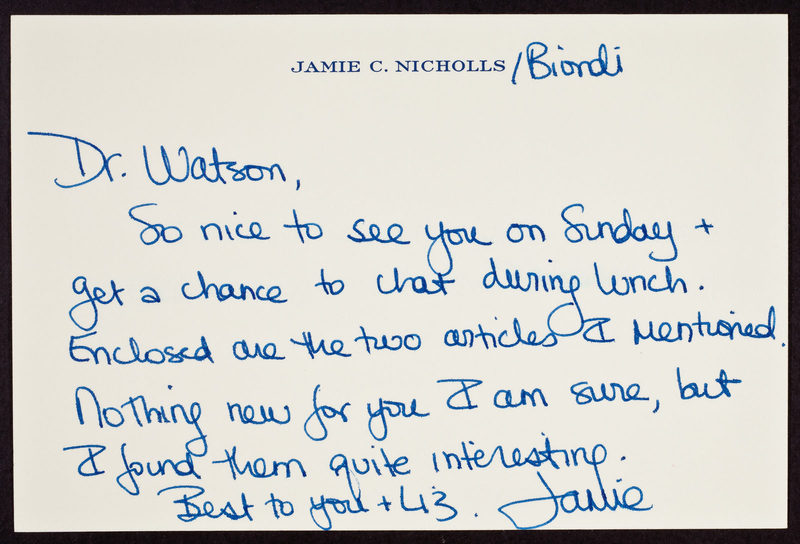 JAMIE C. NICHOLLS /Biondi
Dr. Watson,
So nice to see you on Sunday +
get a chance to chat during lunch.
Enclosed are the two articles I mentioned.
Nothing new for you I am sure, but
I found them quite interesting.
Best to you + Liz. Jamie